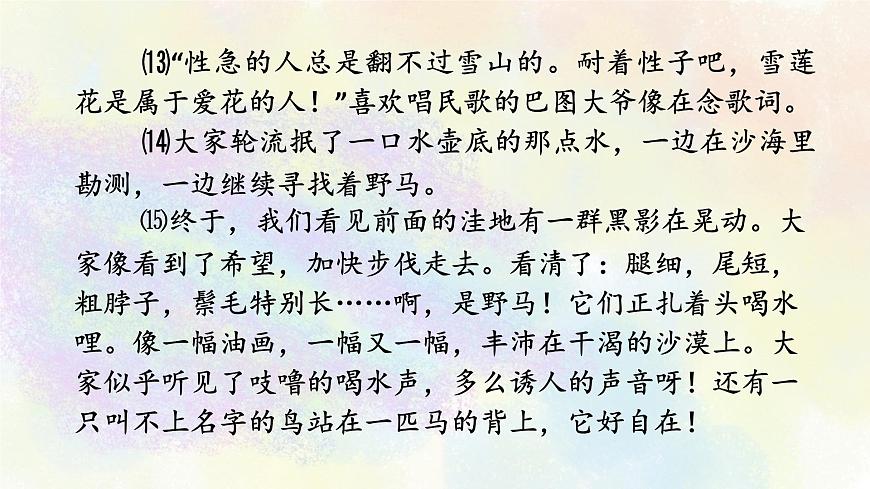 ⒀“性急的人总是翻不过雪山的。耐着性子吧，雪莲
花是属于爱花的人！”喜欢唱民歌的巴图大爷像在念歌词。
⒁大家轮流抿了一口水壶底的那点水，一边在沙海里
勘测，一边继续寻找着野马。
⒂终于，我们看见前面的洼地有一群黑影在晃动。大
家像看到了希望，加快步伐走去。看清了：腿细，尾短，
粗脖子，鬃毛特别长……啊，是野马！它们正扎着头喝水
哩。像一幅油画，一幅又一幅，丰沛在干渴的沙漠上。大
家似乎听见了吱噜的喝水声，多么诱人的声音呀！还有一
只叫不上名字的鸟站在一匹马的背上，它好自在！